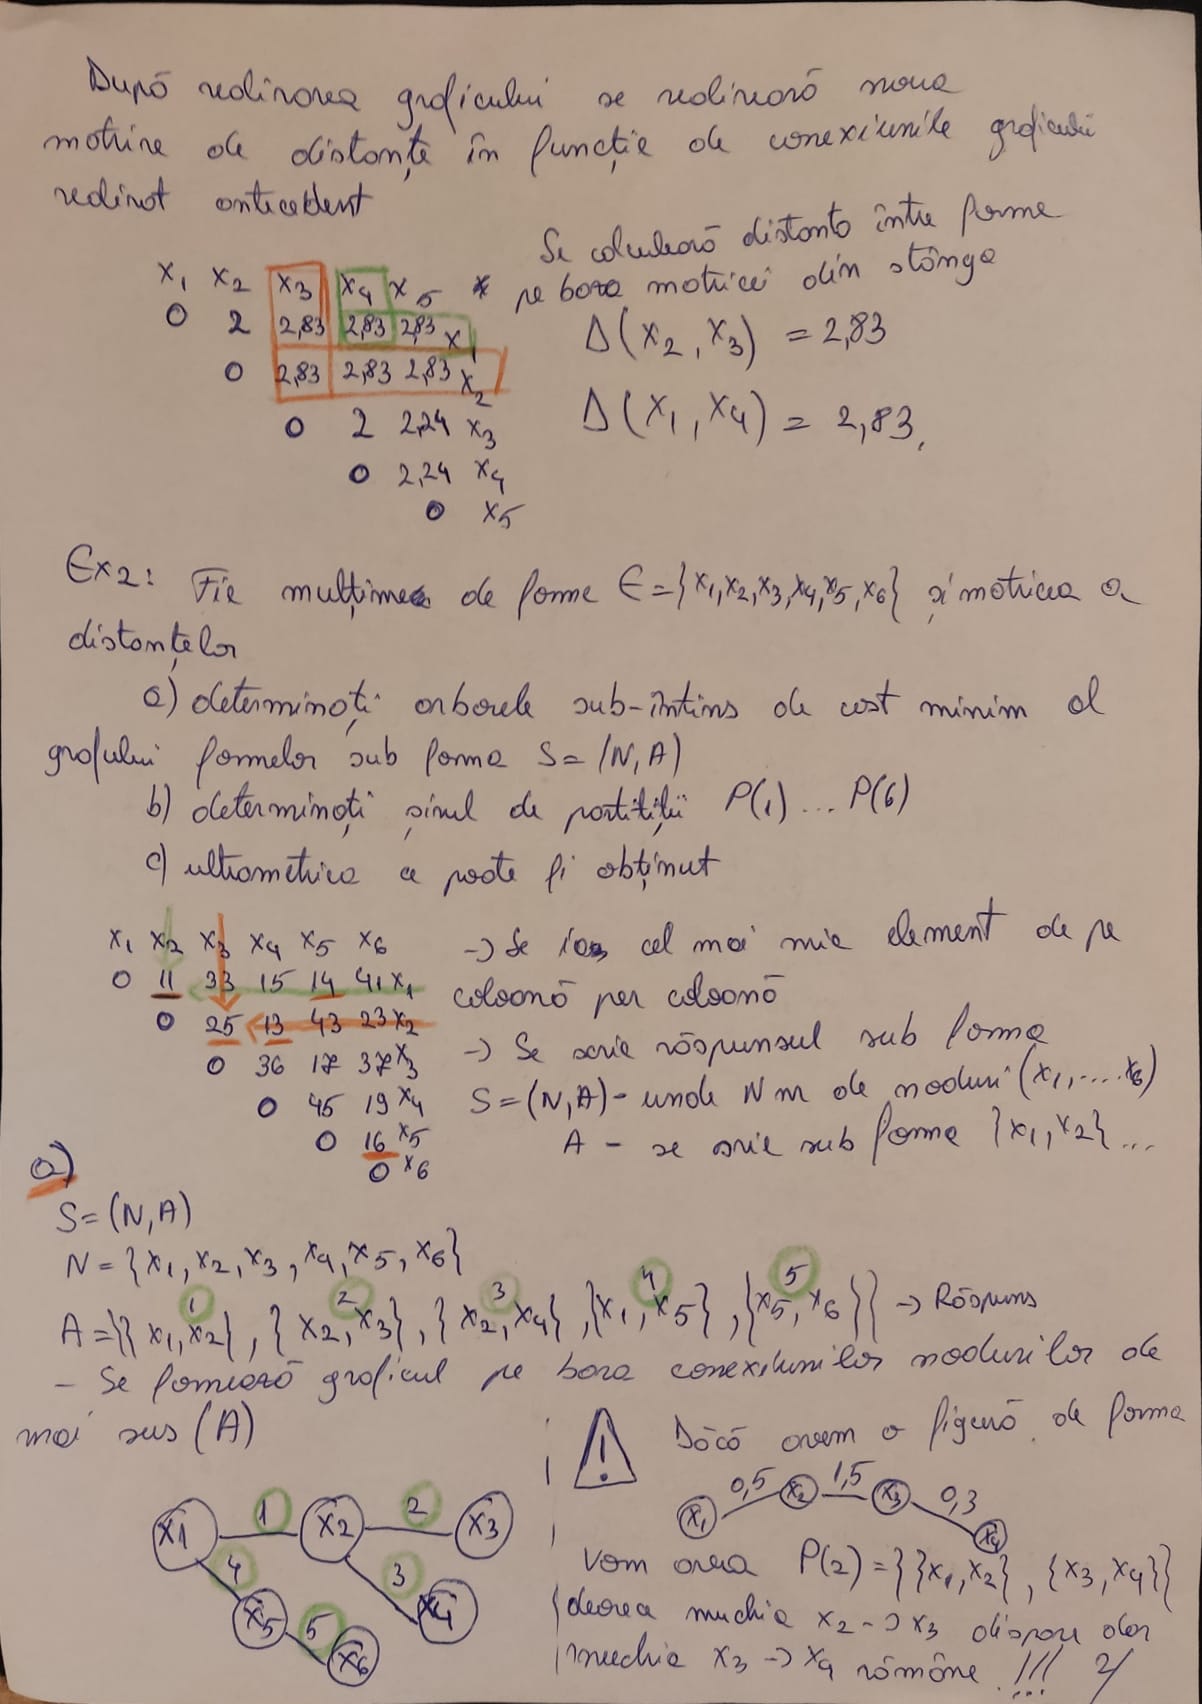 După redinarea graficului se redinează noua
matrice de distanțe în funcție de conexiunile graficului
redinat antecedent
Se calculează distanta între forme
pe baza matricei din stânga
x1 x2 x3 x4 x5 *
0 2 2,83 2,83 2,83 x1
0 2,83 2,83 2,83 x2
0 2 2,24 x3
0 2,24 x4
0 x5
Δ(x2, x3) = 2,83
Δ(x1, x4) = 2,83.
Ex2: Fie mulțimea de forme E={x1,x2,x3,x4,x5,x6} și matricea a
distanțelor
a) determinați arborele sub-întins de cost minim al
grafului formelor sub forma S=(N,A)
b) determinați șirul de partitiții P(1)...P(6)
c) ultrametrica ce poate fi obținut
x1 x2 x3 x4 x5 x6
0 11 33 15 14 41 x1
0 25 13 43 23 x2
0 36 17 37 x3
0 45 19 x4
0 16 x5
0 x6
-> Se ia cel mai mic element de pe
coloană per coloană
-> Se scrie răspunsul sub forma
S=(N,A) - unde N nr de noduri (x1,....x6)
A - se scrie sub forma {x1,x2}...
a)
S=(N,A)
N={x1,x2,x3,x4,x5,x6}
1 2 3 4 5
A={{x1,x2},{x2,x3},{x2,x4},{x1,x5},{x5,x6}} -> Răspuns
- Se formează graficul pe baza conexiunilor nodurilor de
mai sus (A)
x1 1 x2 2 x3
4 3
x5 5 x4
x6
! Dacă avem o figură de forma
0,5 1,5 0,3
x1 x2 x3 x4
Vom avea P(2)={{x1,x2},{x3,x4}}
deorea muchia x2->x3 dispare dar
muchia x3->x4 rămâne !!!